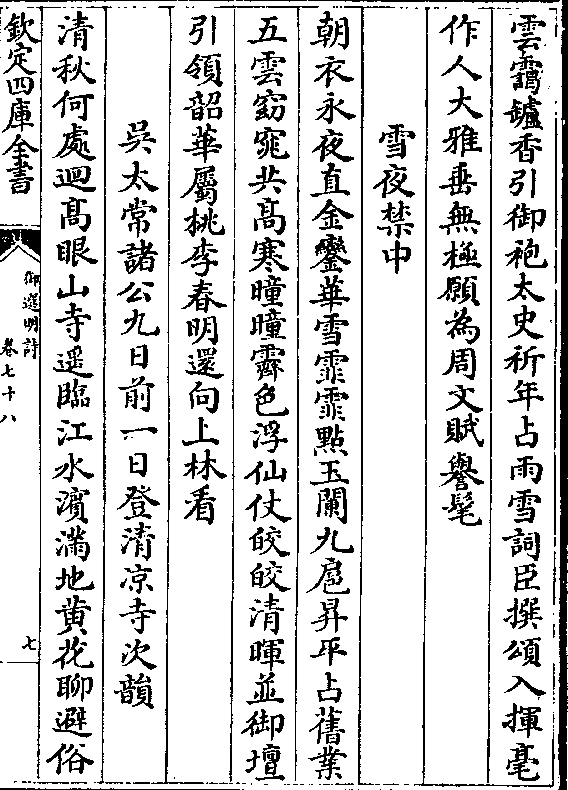 雲靄鑪香引御袍太史祈年占雨雪詞臣撰頌入揮毫
作人大雅垂無極願為周文賦譽髦
雪夜禁中
朝衣永夜直金鑾華雪霏霏點玉闌九扈昇平占舊業
五雲窈窕共高寒曈曈霽色浮仙仗皎皎清暉並御壇
引領韶華屬桃李春明還向上林看
吳太常諸公九日前一日登清凉寺次韻
清秋何處迥髙眼山寺遥臨江水濵滿地黄花聊避俗
欽定四庫全書
御選明詩
卷七十八
七